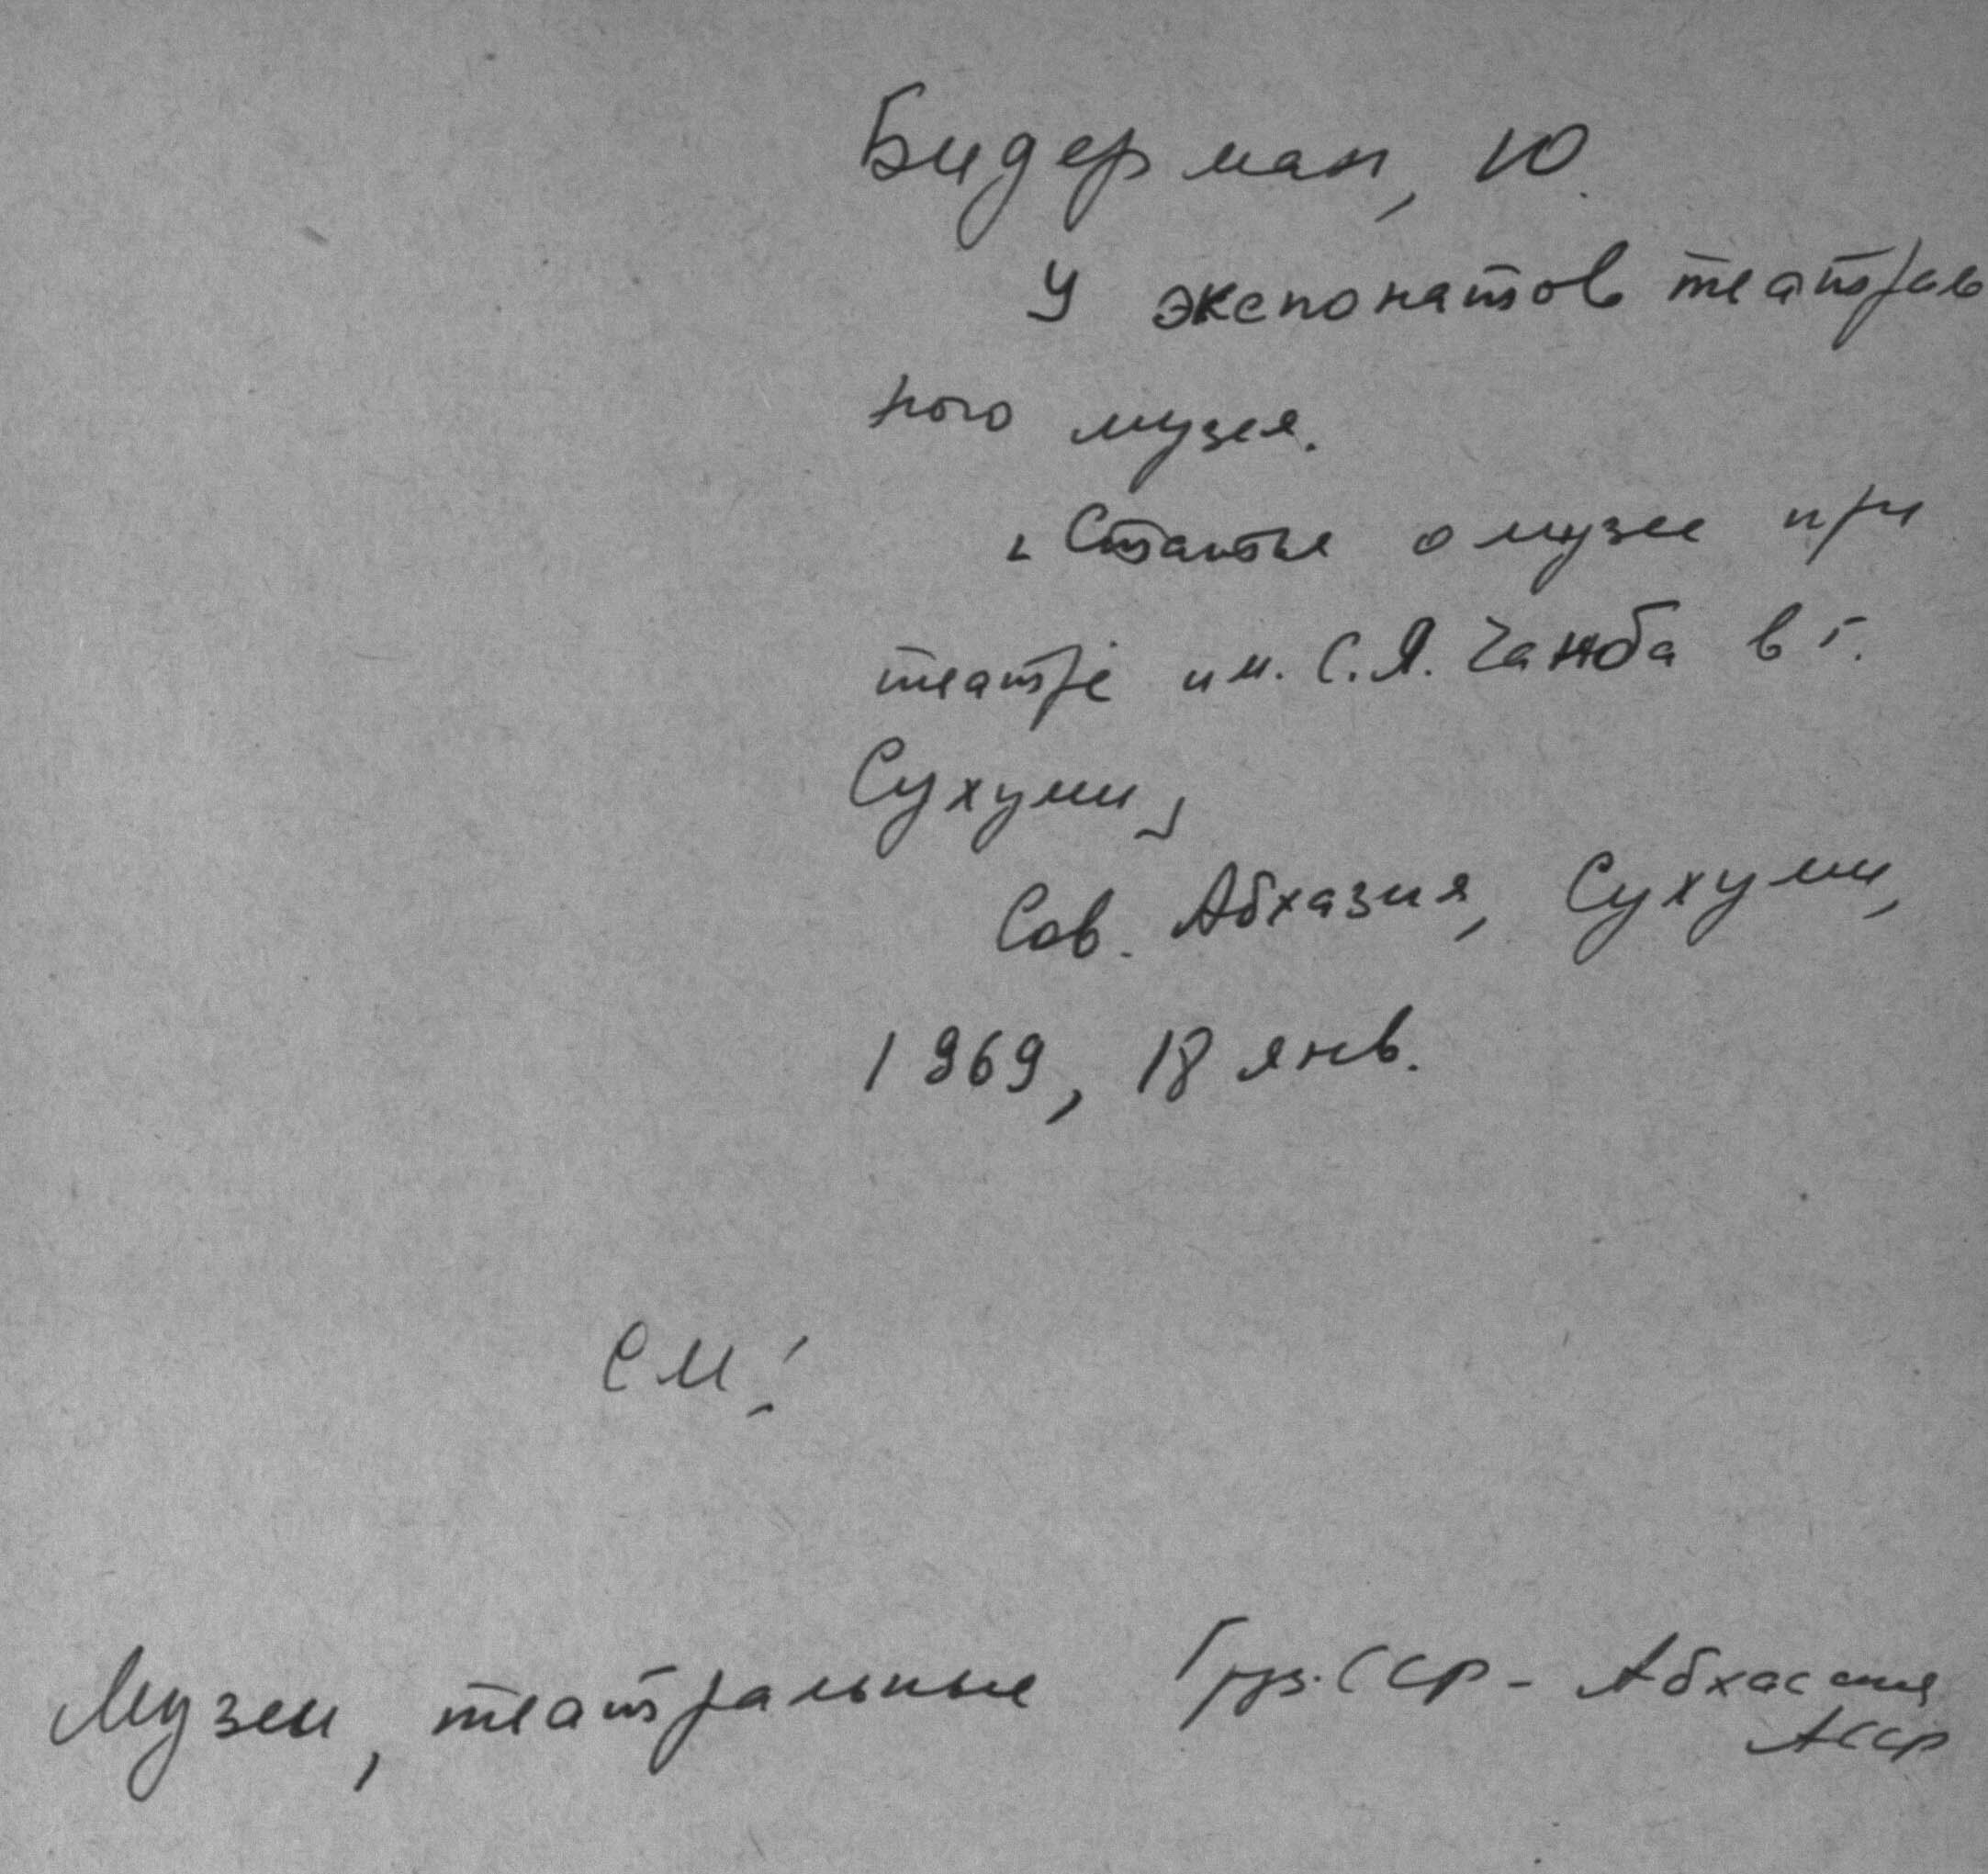 Бидерман, Ю.
У экспонатов театраль
ного музея.
[Статья о музее при
театре им. С.Я. Чанба в г.
Сухуми]
Сов. Абхазия, Сухуми,
1969, 18 янв.
см:
Музеи, театральные Груз.ССР - Абхасская
АССР